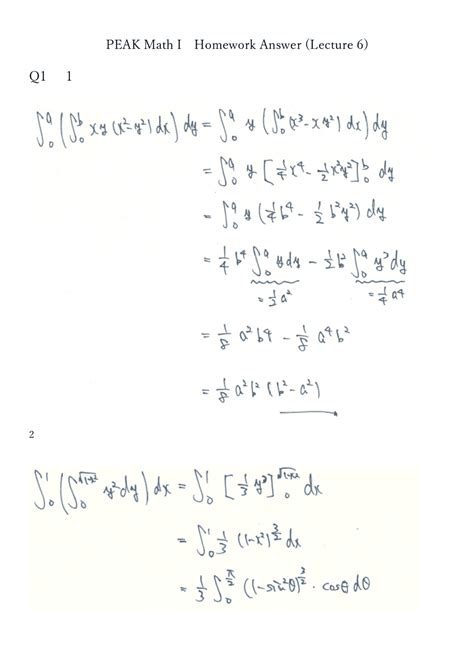 PEAK Math I Homework Answer (Lecture 6)
Q1 1
∫₀ᵃ (∫₀ᵇ xy (x²-y²) dx) dy = ∫₀ᵃ y (∫₀ᵇ (x³ - xy²) dx) dy
= ∫₀ᵃ y [¼x⁴ - ½x²y²]₀ᵇ dy
= ∫₀ᵃ y (¼b⁴ - ½b²y²) dy
= ¼ b⁴ ∫₀ᵃ y dy - ½ b² ∫₀ᵃ y³ dy
= ½ a² = ¼ a⁴
= ⅛ a² b⁴ - ⅛ a⁴ b²
= ⅛ a² b² (b² - a²)
2
∫₀¹ (∫₀^√(1-x²) y² dy) dx = ∫₀¹ [⅓ y³]₀^√(1-x²) dx
= ∫₀¹ ⅓ (1-x²)^(3/2) dx
= ⅓ ∫₀^(π/2) (1-sin²θ)^(3/2) · cosθ dθ